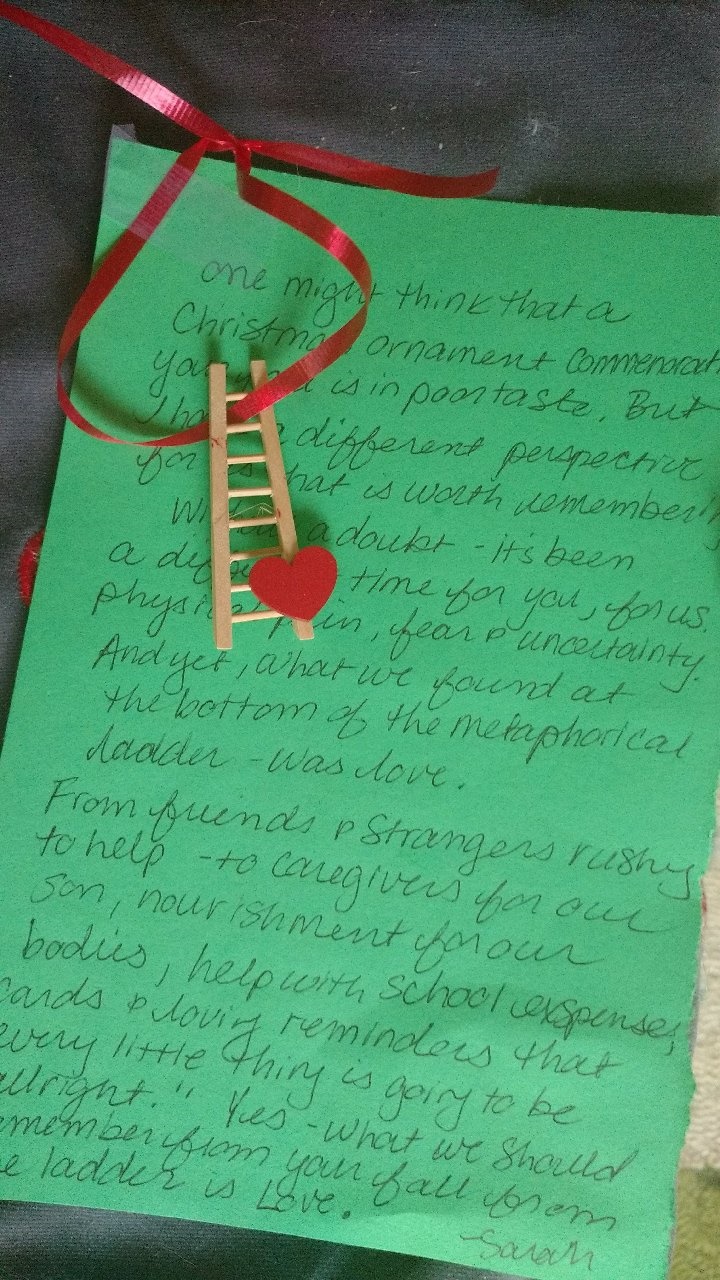 one might think that a
Christmas ornament commemorat
your is in poor taste. But
I have a different perspective
for us what is worth remember
Without a doubt - its been
a difficult time for you, for us.
physical pain, fear & uncertainty.
And yet, what we found at
the bottom of the metaphorical
ladder - was love.
From friends & strangers rushing
to help - to caregivers for our
son, nourishment for our
bodies, help with school expenses,
cards & loving reminders that
every little thing is going to be
allright." Yes - what we should
emember from your fall from
e ladder is Love.
- Sarah